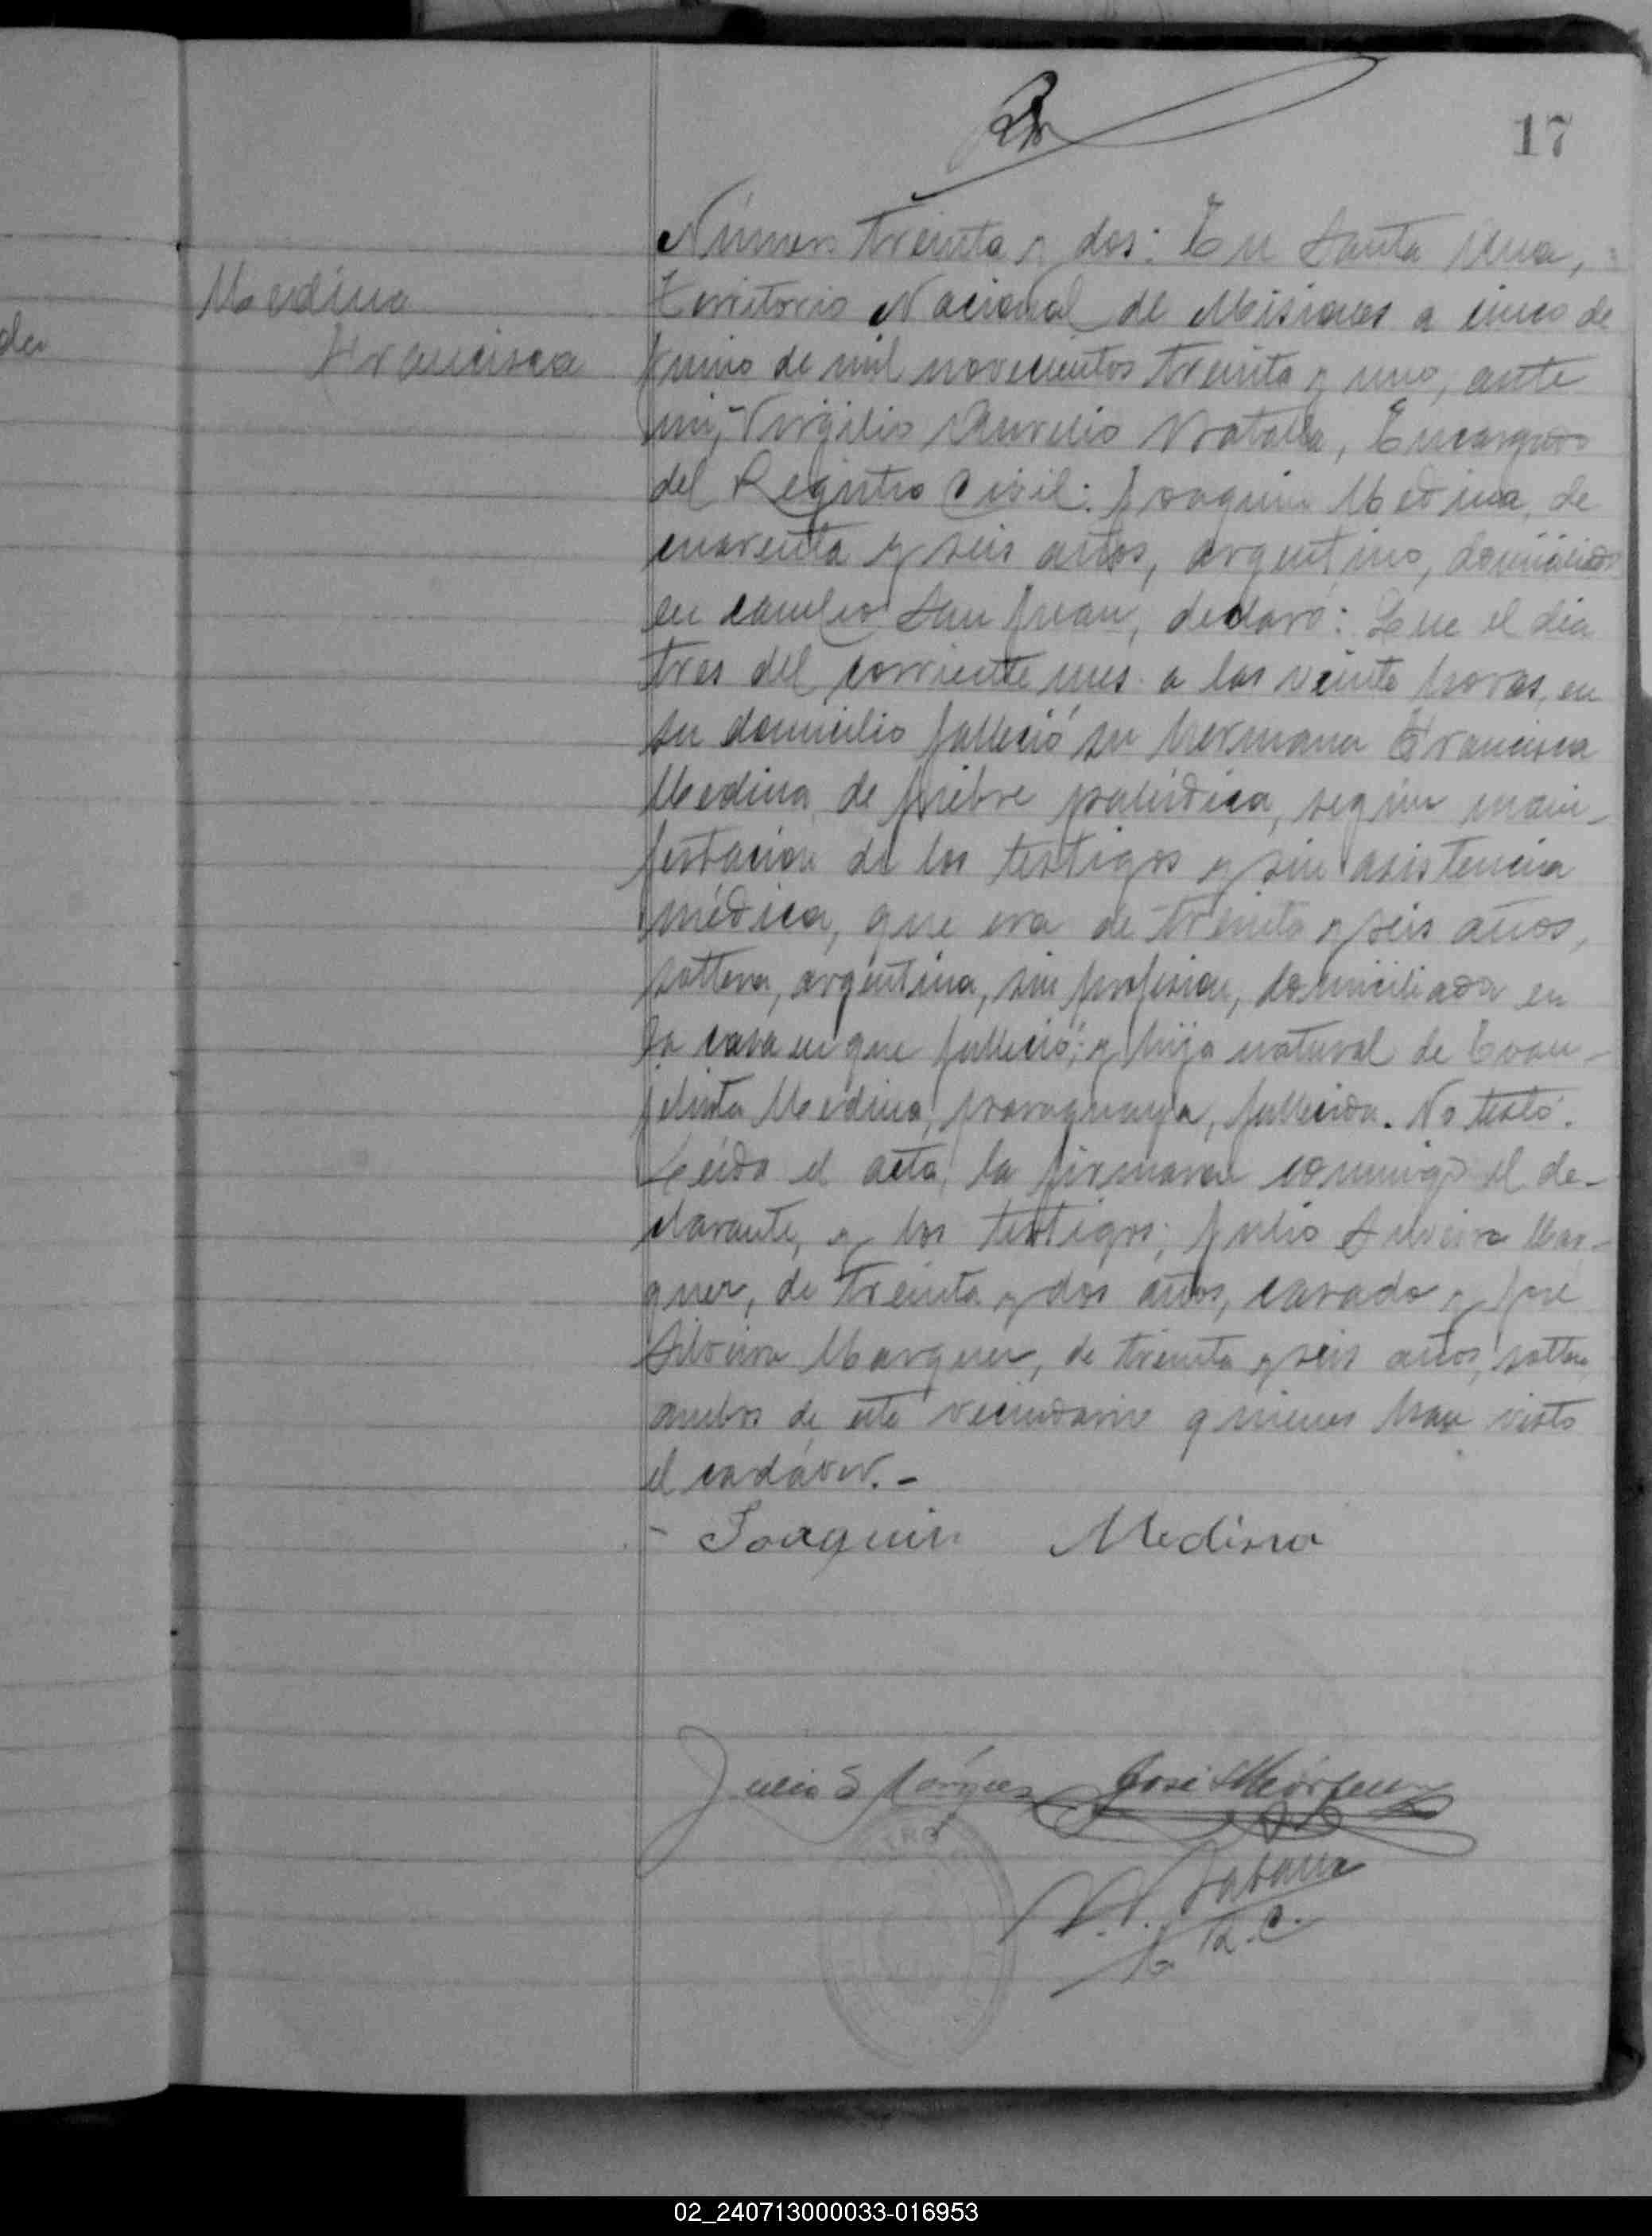 17
Número treinta y dos: En Santa Ana,
Medina
Francisca
Territorio Nacional de Misiones a cinco de
junio de mil novecientos treinta y uno, ante
mi, Virgilio Aurelio, Encargado
del Registro Civil: Joaquin Medina, de
cuarenta y seis años, argentino, domiciliado
en campo San Juan, declaró: Que el dia
tres del corriente mes a las veinte horas, en
su domicilio falleció su hermana Francisca
Medina de fiebre palúdica, según mani-
festación de los testigos y sin asistencia
médica, que era de treinta y seis años,
soltera, argentina, sin profesion, domiciliada en
la casa en que falleció; y hija natural de Evan-
gelista Medina, paraguaya, fallecida. No testó.
Leída el acta, la firmaron conmigo el de-
clarante, y los testigos; Julio Silveira Mar-
quez, de treinta y dos años, casado y José
Silveira Marquez, de treinta y seis años, soltero,
ambos de este vecindario quienes han visto
el cadáver.-
- Joaquin Medina
Julio S Márquez José S Márquez
R.C.
02_240713000033-016953